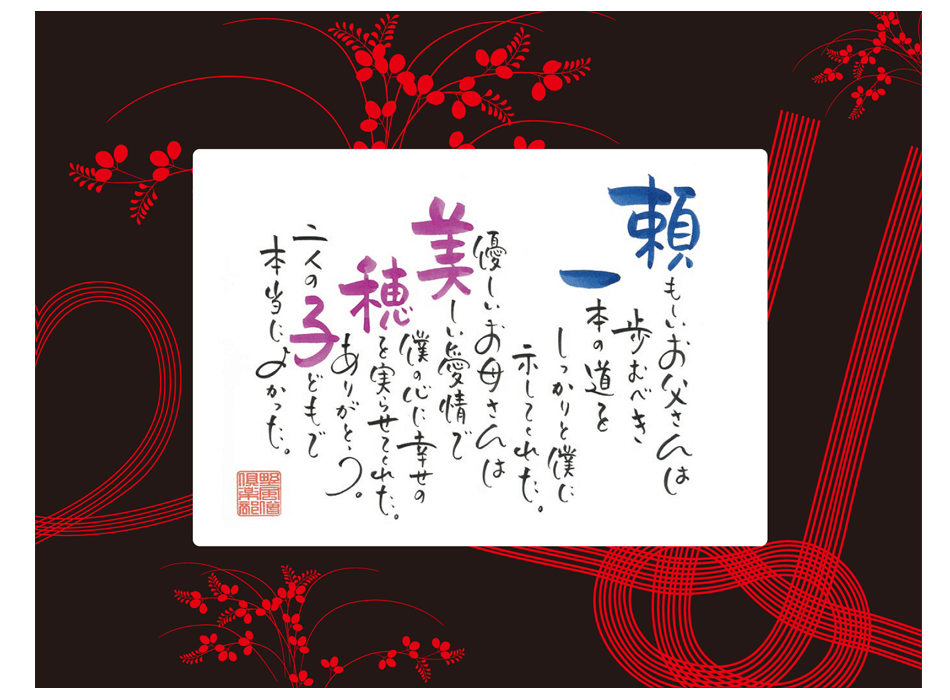 頼もしいお父さんは
歩むべき
一本の道を
しっかりと僕に
示してくれた。
優しいお母さんは
美しい愛情で
僕の心に幸せの
穂を実らせてくれた。
ありがとう。
二人の子どもで
本当によかった。
野風僧
倶楽部